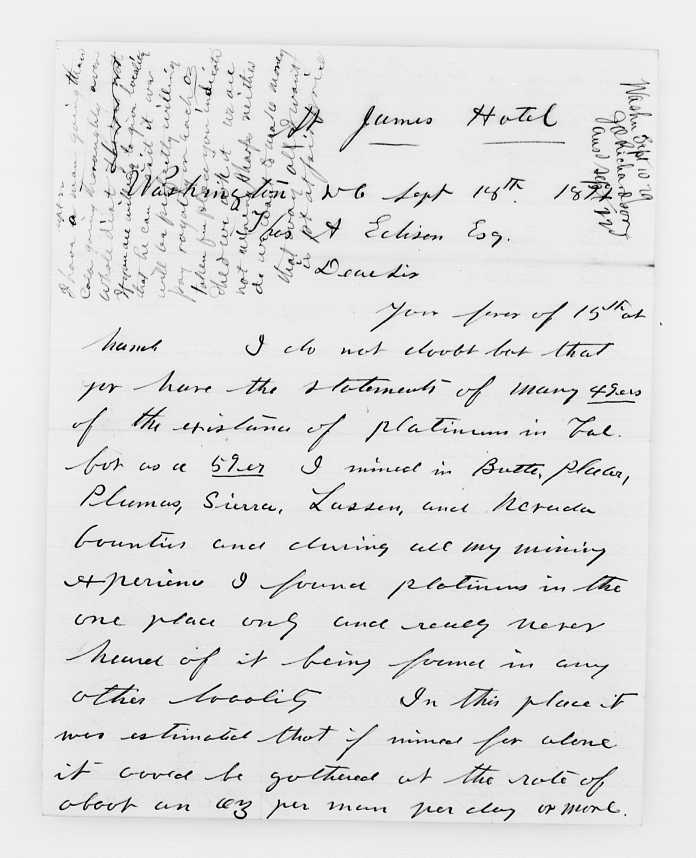 St James Hotel
Washington D C Sept 18th 1879
Thos A Edison Esq.
Dear Sir
Your favor of 15th at
hand I do not doubt but that
you have the statements of many 49ers
of the existance of platinum in Cal.
but as a 59er I mined in Butte, Placer,
Plumas, Sierra, Lassen, and Nevada
Counties and during all my mining
experience I found platinum in the
one place only and really never
heard of it being found in any
other locality In this place it
was estimated that if mined for alone
it could be gathered at the rate of
about an oz per man per day or more.
I have a man going there
Cala going thoroughly over
whole dist
if you are willing to give locality
that he can visit it
will be perfectly willing
pay
token
not
do want to make money
that way all I want
is
Washn Sept 18 79
Richardson
ansd Sept